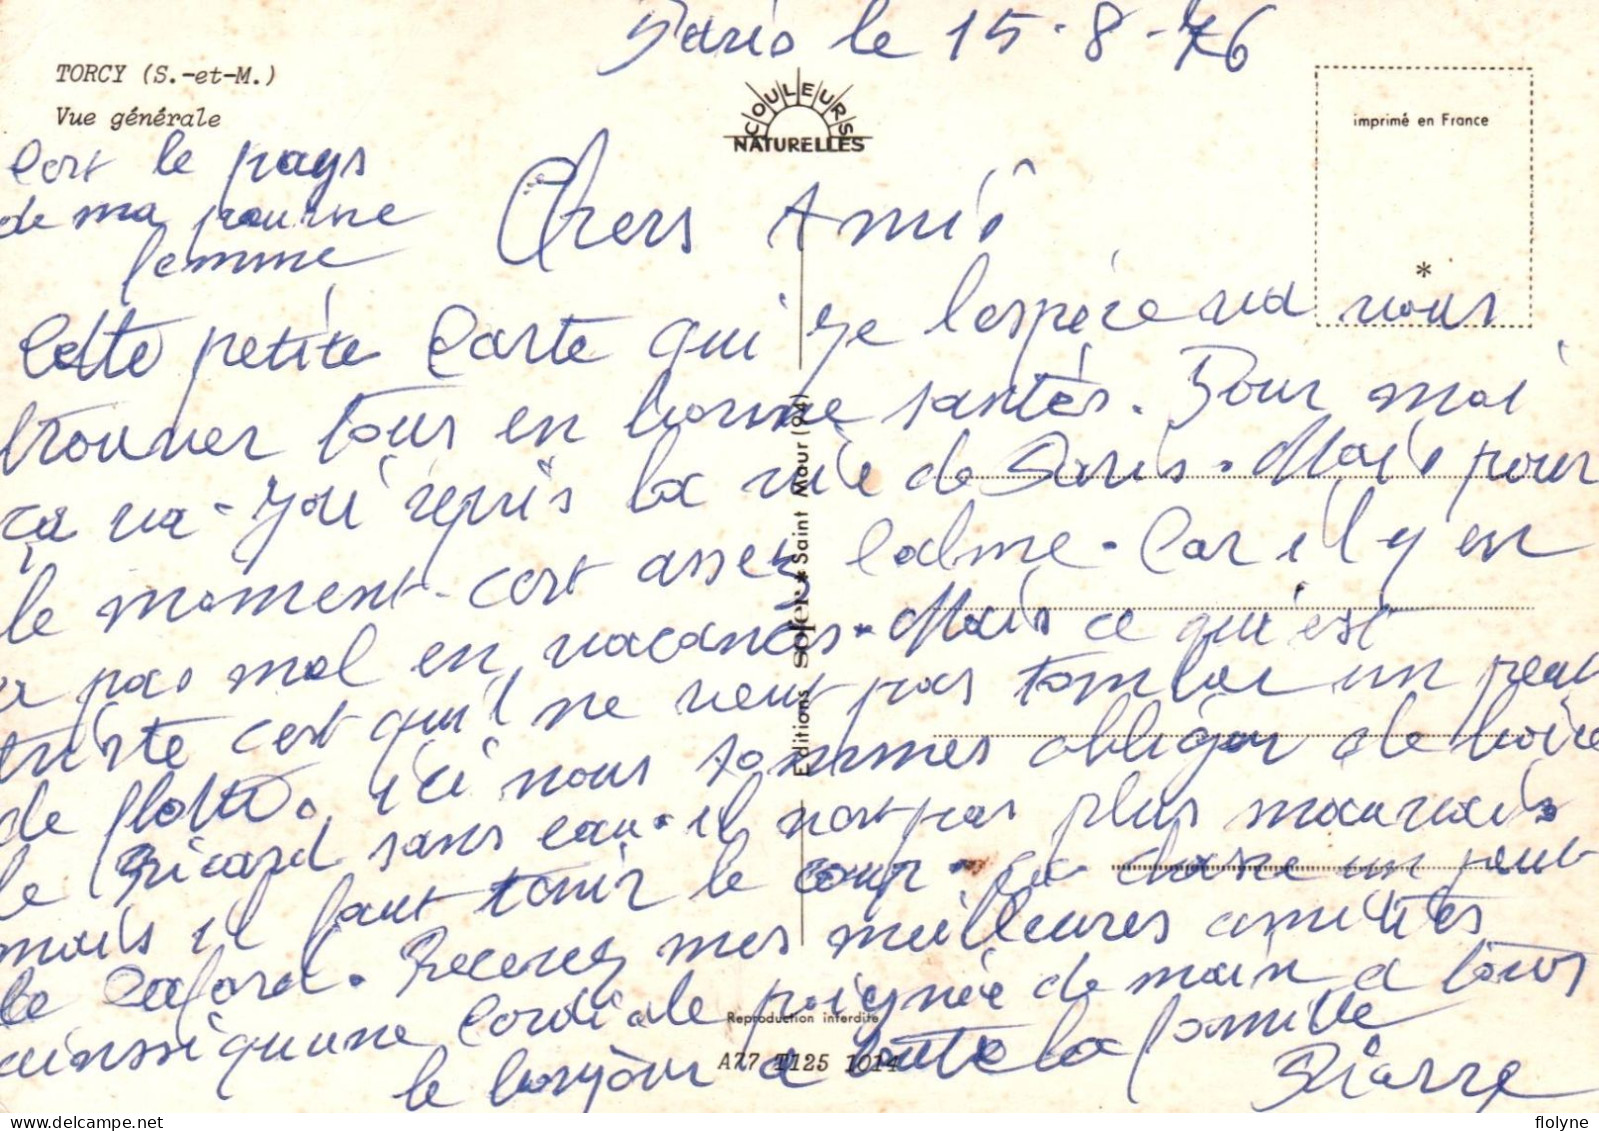 Paris le 15-8-76
TORCY (S.-et-M.)
Vue générale
COULEURS
NATURELLES
imprimé en France
*
Cest le pays
de ma pauvre
femme
Chers Amis
Cette petite Carte qui je l'espère va vous
trouver tous en bonne santés. Pour moi
ça va - J'ai repris la vie de Paris. Mais pour
le moment c'est assez calme - Car il y en
a pas mal en vacances. Mais ce qu'est
triste cest qu'il ne veut pas tomber un peut
de flotte. ici nous sommes obliger de boire
le Ricard sans eau. il n'est pas plus mauvais
mais il faut tenir le coup. ça chasse un peut
le cafard. Recevez mes meilleures amitités
ainssi qu'une Cordiale poignée de main a tous
le bonjour a toute la famille
Pierre
Editions SOFER * Saint Maur (94)
Reproduction interdite
A77 T125 1014
flolyne